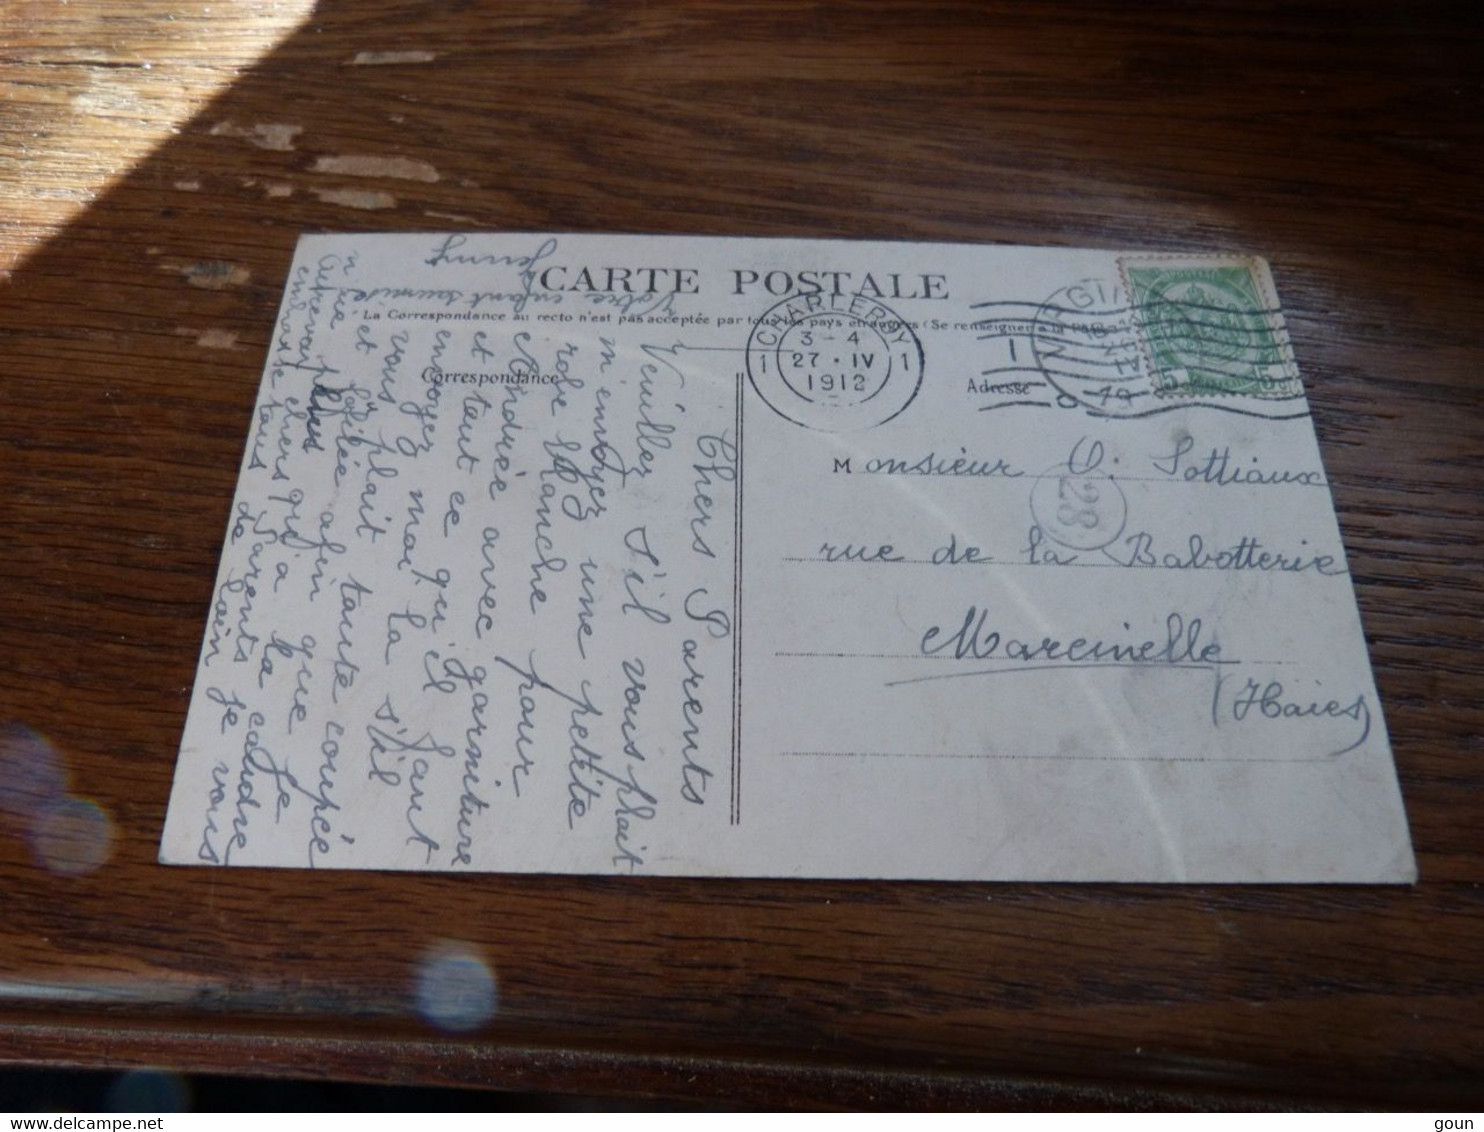 CARTE POSTALE
La Correspondance au recto n'est pas acceptée par tous les pays étrangers (Se renseigner à la Poste)
Correspondance
Adresse
CHARLEROY
1 1
3-4
27 · IV
1912
5 5
28
Monsieur O. Sottiaux
rue de la Babotterie
Marcinelle
(Haies)
Chers Parents
Veuillez s'il vous plait
m'envoyez une petite
robe blanche pour
Andrée avec garniture
et tout ce qu'il faut
envoyez moi la s'il
vous plait tante coupée
et afin que je
n'aie plus qu'a la coudre
Aurevoir chers Parents je vous
embrasse tous de loin
Votre enfant soumise
Jenny
goun